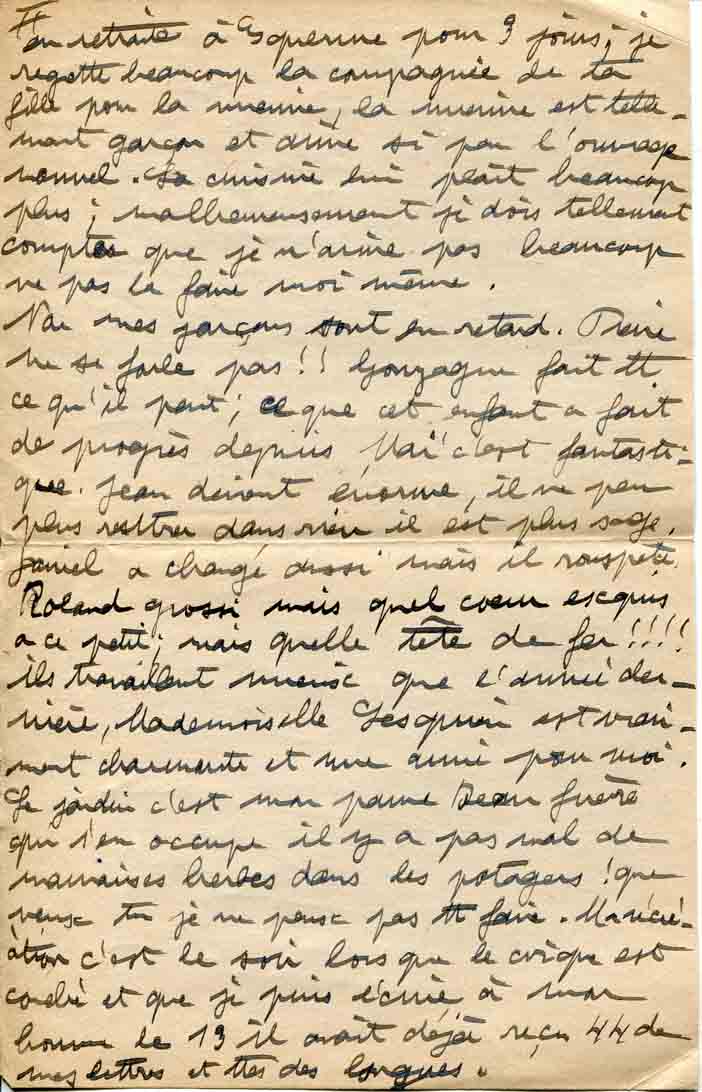 en retraite à Esquerme pour 3 jours; je
regette beaucoup la compagnée de ta
fille pour la mienne, la mienne est telle-
ment garçon et aime si peu l'ouvrage
manuel. La cuisine lui plait beaucoup
plus; malheureusement je dois tellement
compter que je n'aime pas beaucoup
ne pas la faire moi même.
mes garçons sont en retard. Pierre
ne se foule pas!! Gonzague fait tt
ce qu'il peut; ce que cet enfant a fait
de progrès depuis Mai c'est fantasti-
que. Jean devient énorme, il ne peu
plus rentrer dans rien il est plus sage.
Daniel a changé aussi mais il rouspete.
Roland grossi mais quel coeur exquis
a ce petit; mais quelle tête de fer!!!!
ils travaillent mieux que l'année der-
nière, Mademoiselle Lesquin est vrai-
ment charmante et une amie pour moi.
Le jardin c'est mon pauvre Beau frère
qui s'en occupe il y a pas mal de
mauvaises herbes dans les potagers! que
veux tu je ne peux pas tt faire. Ma récré-
ation c'est le soir lorsque le cirque est
couché et que je puis écrire à mon
homme le 13 il avait déjà reçu 44 de
mes lettres et ttes des longues.